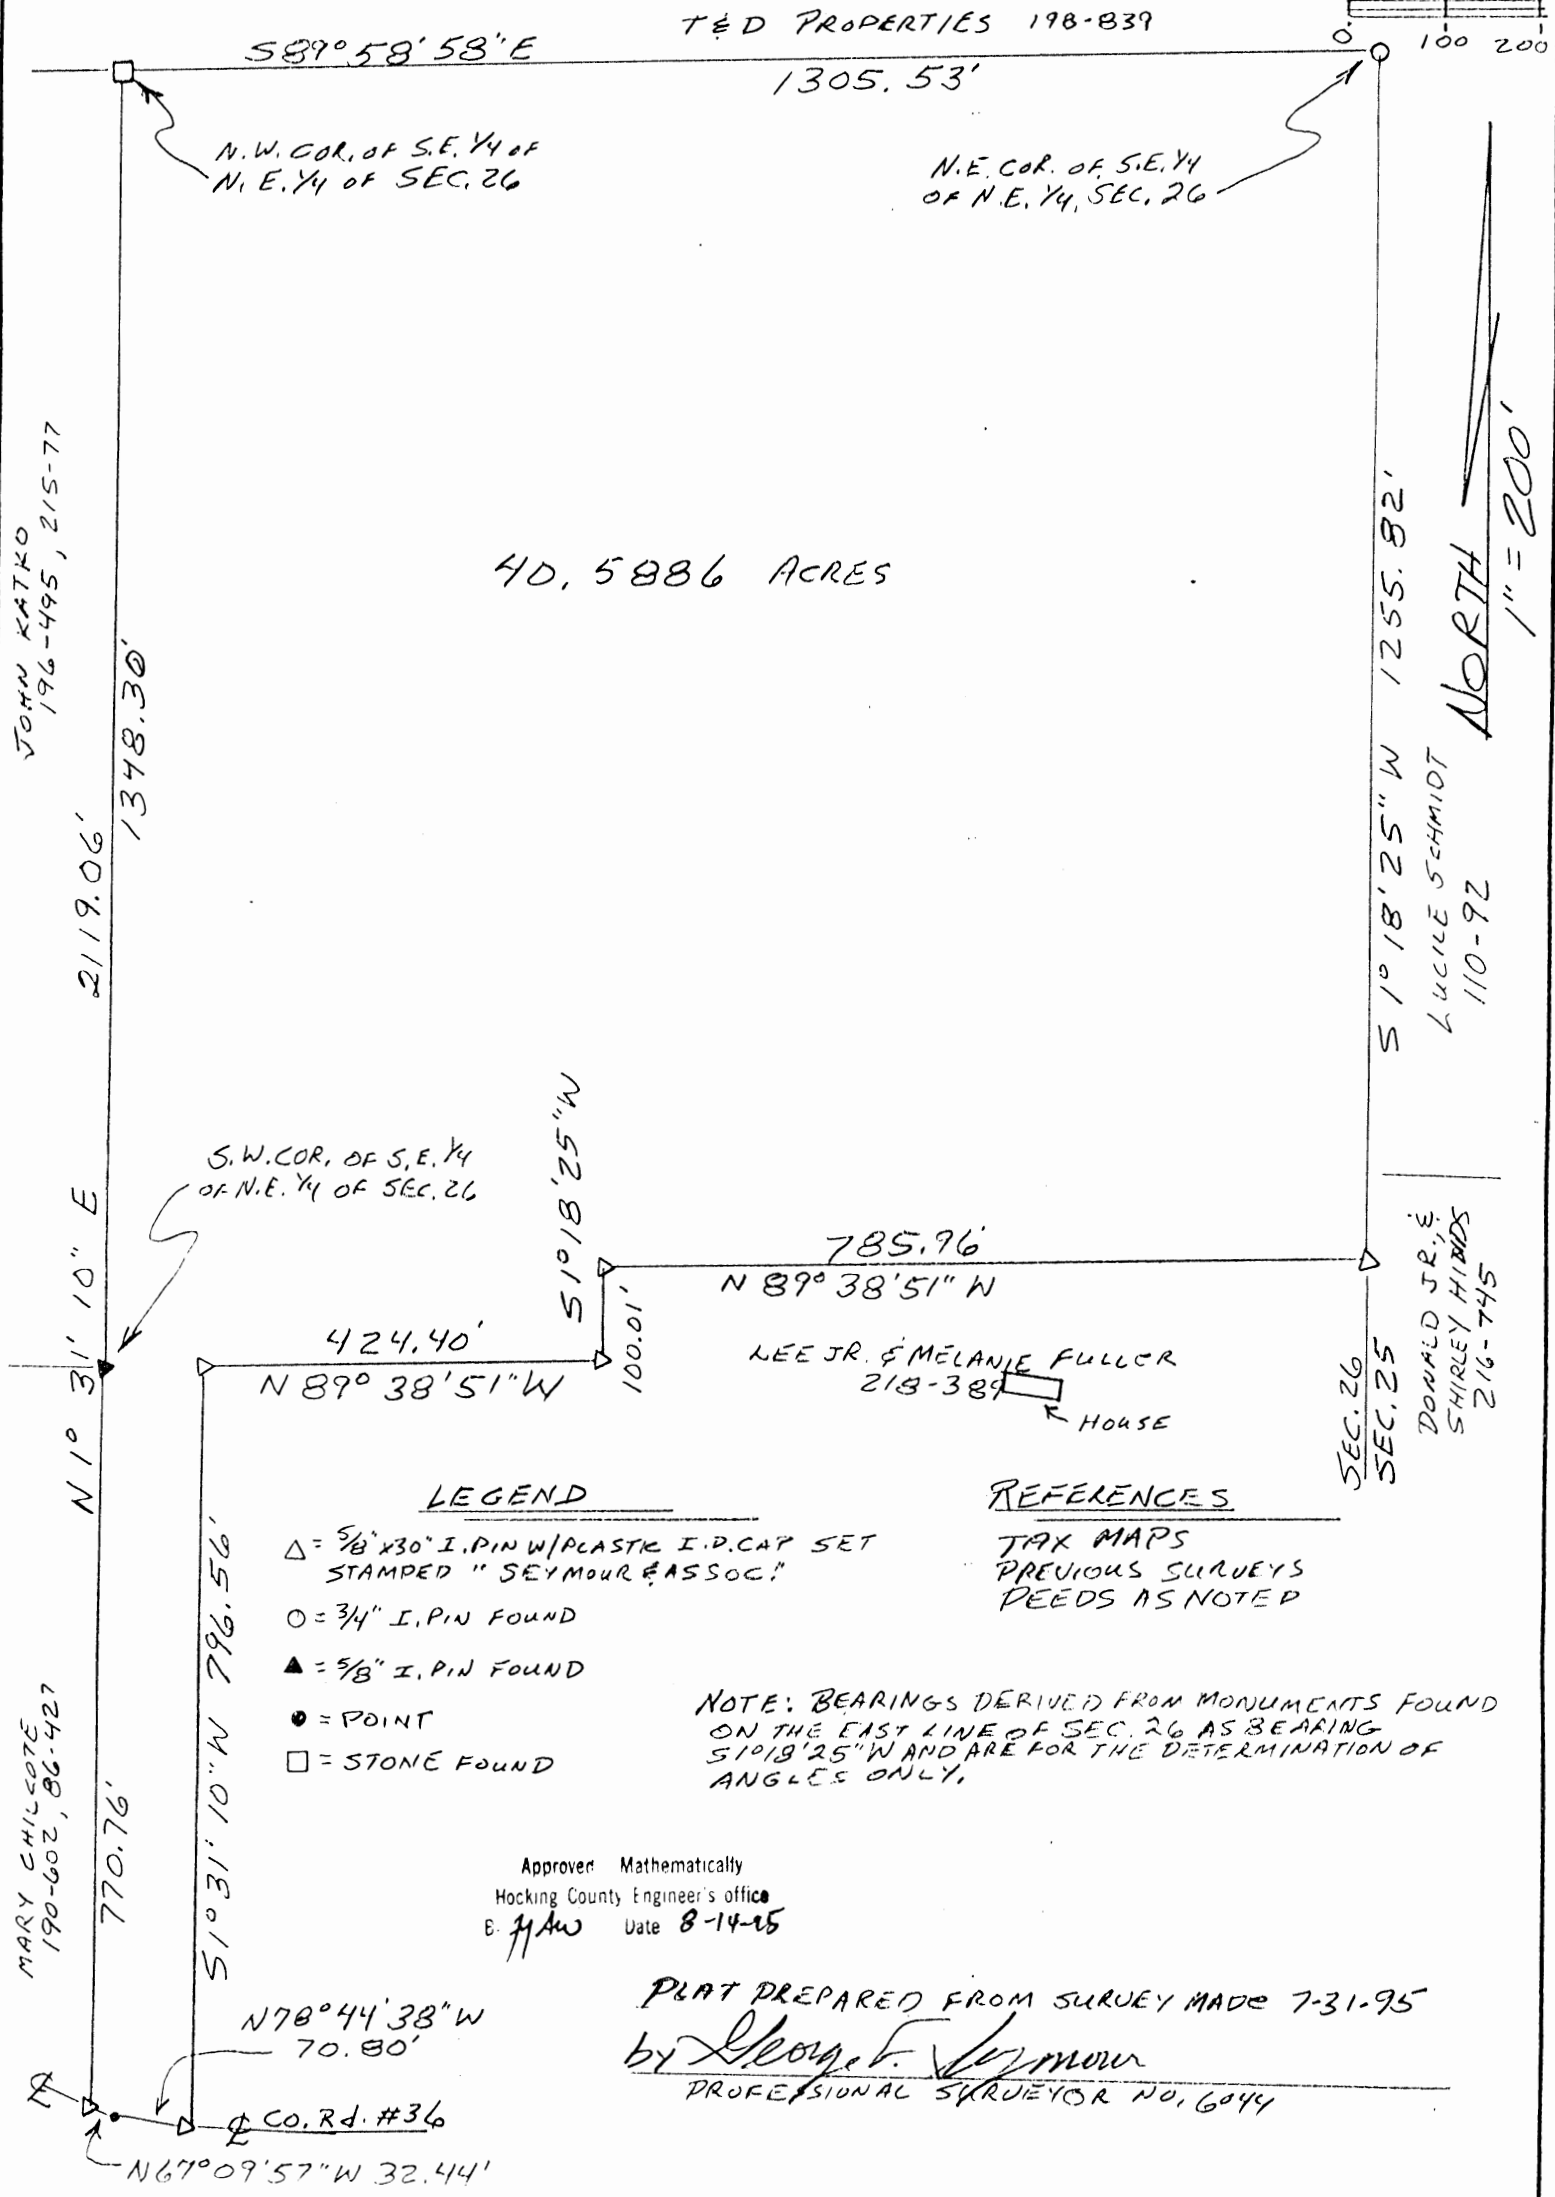 T & D PROPERTIES 198-839
0 100 200
S89°58'58"E
1305.53'
N.W. COR. OF S.E. 1/4 OF
N.E. 1/4 OF SEC. 26
N.E. COR. OF S.E. 1/4
OF N.E. 1/4, SEC. 26
JOHN KATKO
196-495, 215-77
40.5886 ACRES
1348.30'
2119.06'
N 1° 31' 10" E
S 1° 18' 25" W 1255.82'
NORTH
1" = 200'
LUCILE SCHMIDT
110-92
S.W. COR. OF S.E. 1/4
OF N.E. 1/4 OF SEC. 26
S 1° 18' 25" W
100.01'
785.96'
N 89° 38' 51" W
424.40'
N 89° 38' 51" W
LEE JR. & MELANIE FULLER
218-389
HOUSE
SEC. 26
SEC. 25
DONALD JR., &
SHIRLEY HINDS
216-745
LEGEND
△ = 5/8" x 30" I. PIN W/PLASTIC I.D. CAP SET
STAMPED "SEYMOUR & ASSOC."
○ = 3/4" I. PIN FOUND
▲ = 5/8" I. PIN FOUND
● = POINT
□ = STONE FOUND
REFERENCES
TAX MAPS
PREVIOUS SURVEYS
DEEDS AS NOTED
NOTE: BEARINGS DERIVED FROM MONUMENTS FOUND
ON THE EAST LINE OF SEC. 26 AS BEARING
S1°18'25"W AND ARE FOR THE DETERMINATION OF
ANGLES ONLY.
MARY CHILCOTE
190-602, 86-427
770.76'
S 1° 31' 10" W 796.56'
Approved Mathematically
Hocking County Engineer's office
Date 8-14-95
N78°44'38"W
70.80'
PLAT PREPARED FROM SURVEY MADE 7-31-95
by George F. Seymour
PROFESSIONAL SURVEYOR NO. 6044
℄ CO. Rd. #36
N67°09'57"W 32.44'